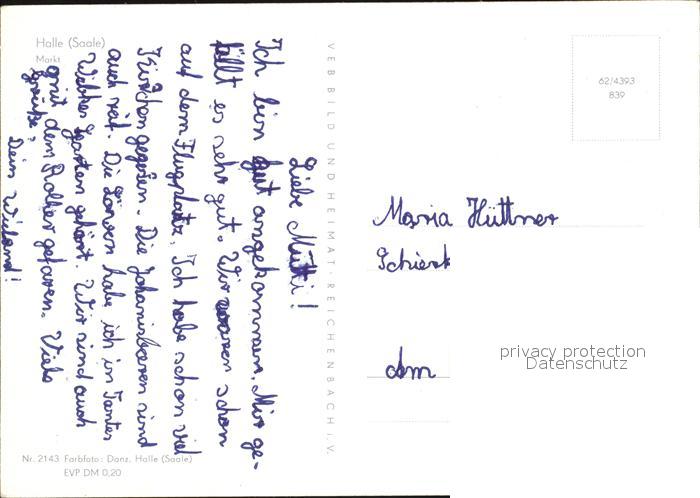 Halle (Saale)
Markt
Liebe Mutti!
Ich bin gut angekommen. Mir ge-
fällt es sehr gut. Wir waren schon
auf dem Flugplatz. Ich habe schon viel
Kirschen gegessen. Die Johanisbeeren sind
auch reif. Die habe ich in Tantes
Garten gehört. Wir sind auch
mit dem Roller gefaren. Viele
Grüße,
Dein Wieland!
VEB BILD UND HEIMAT · REICHENBACH i. V.
62/4393
839
Maria Hüttner
Schierk
Am
privacy protection
Datenschutz
Nr. 2143 Farbfoto: Danz, Halle (Saale)
EVP DM 0,20